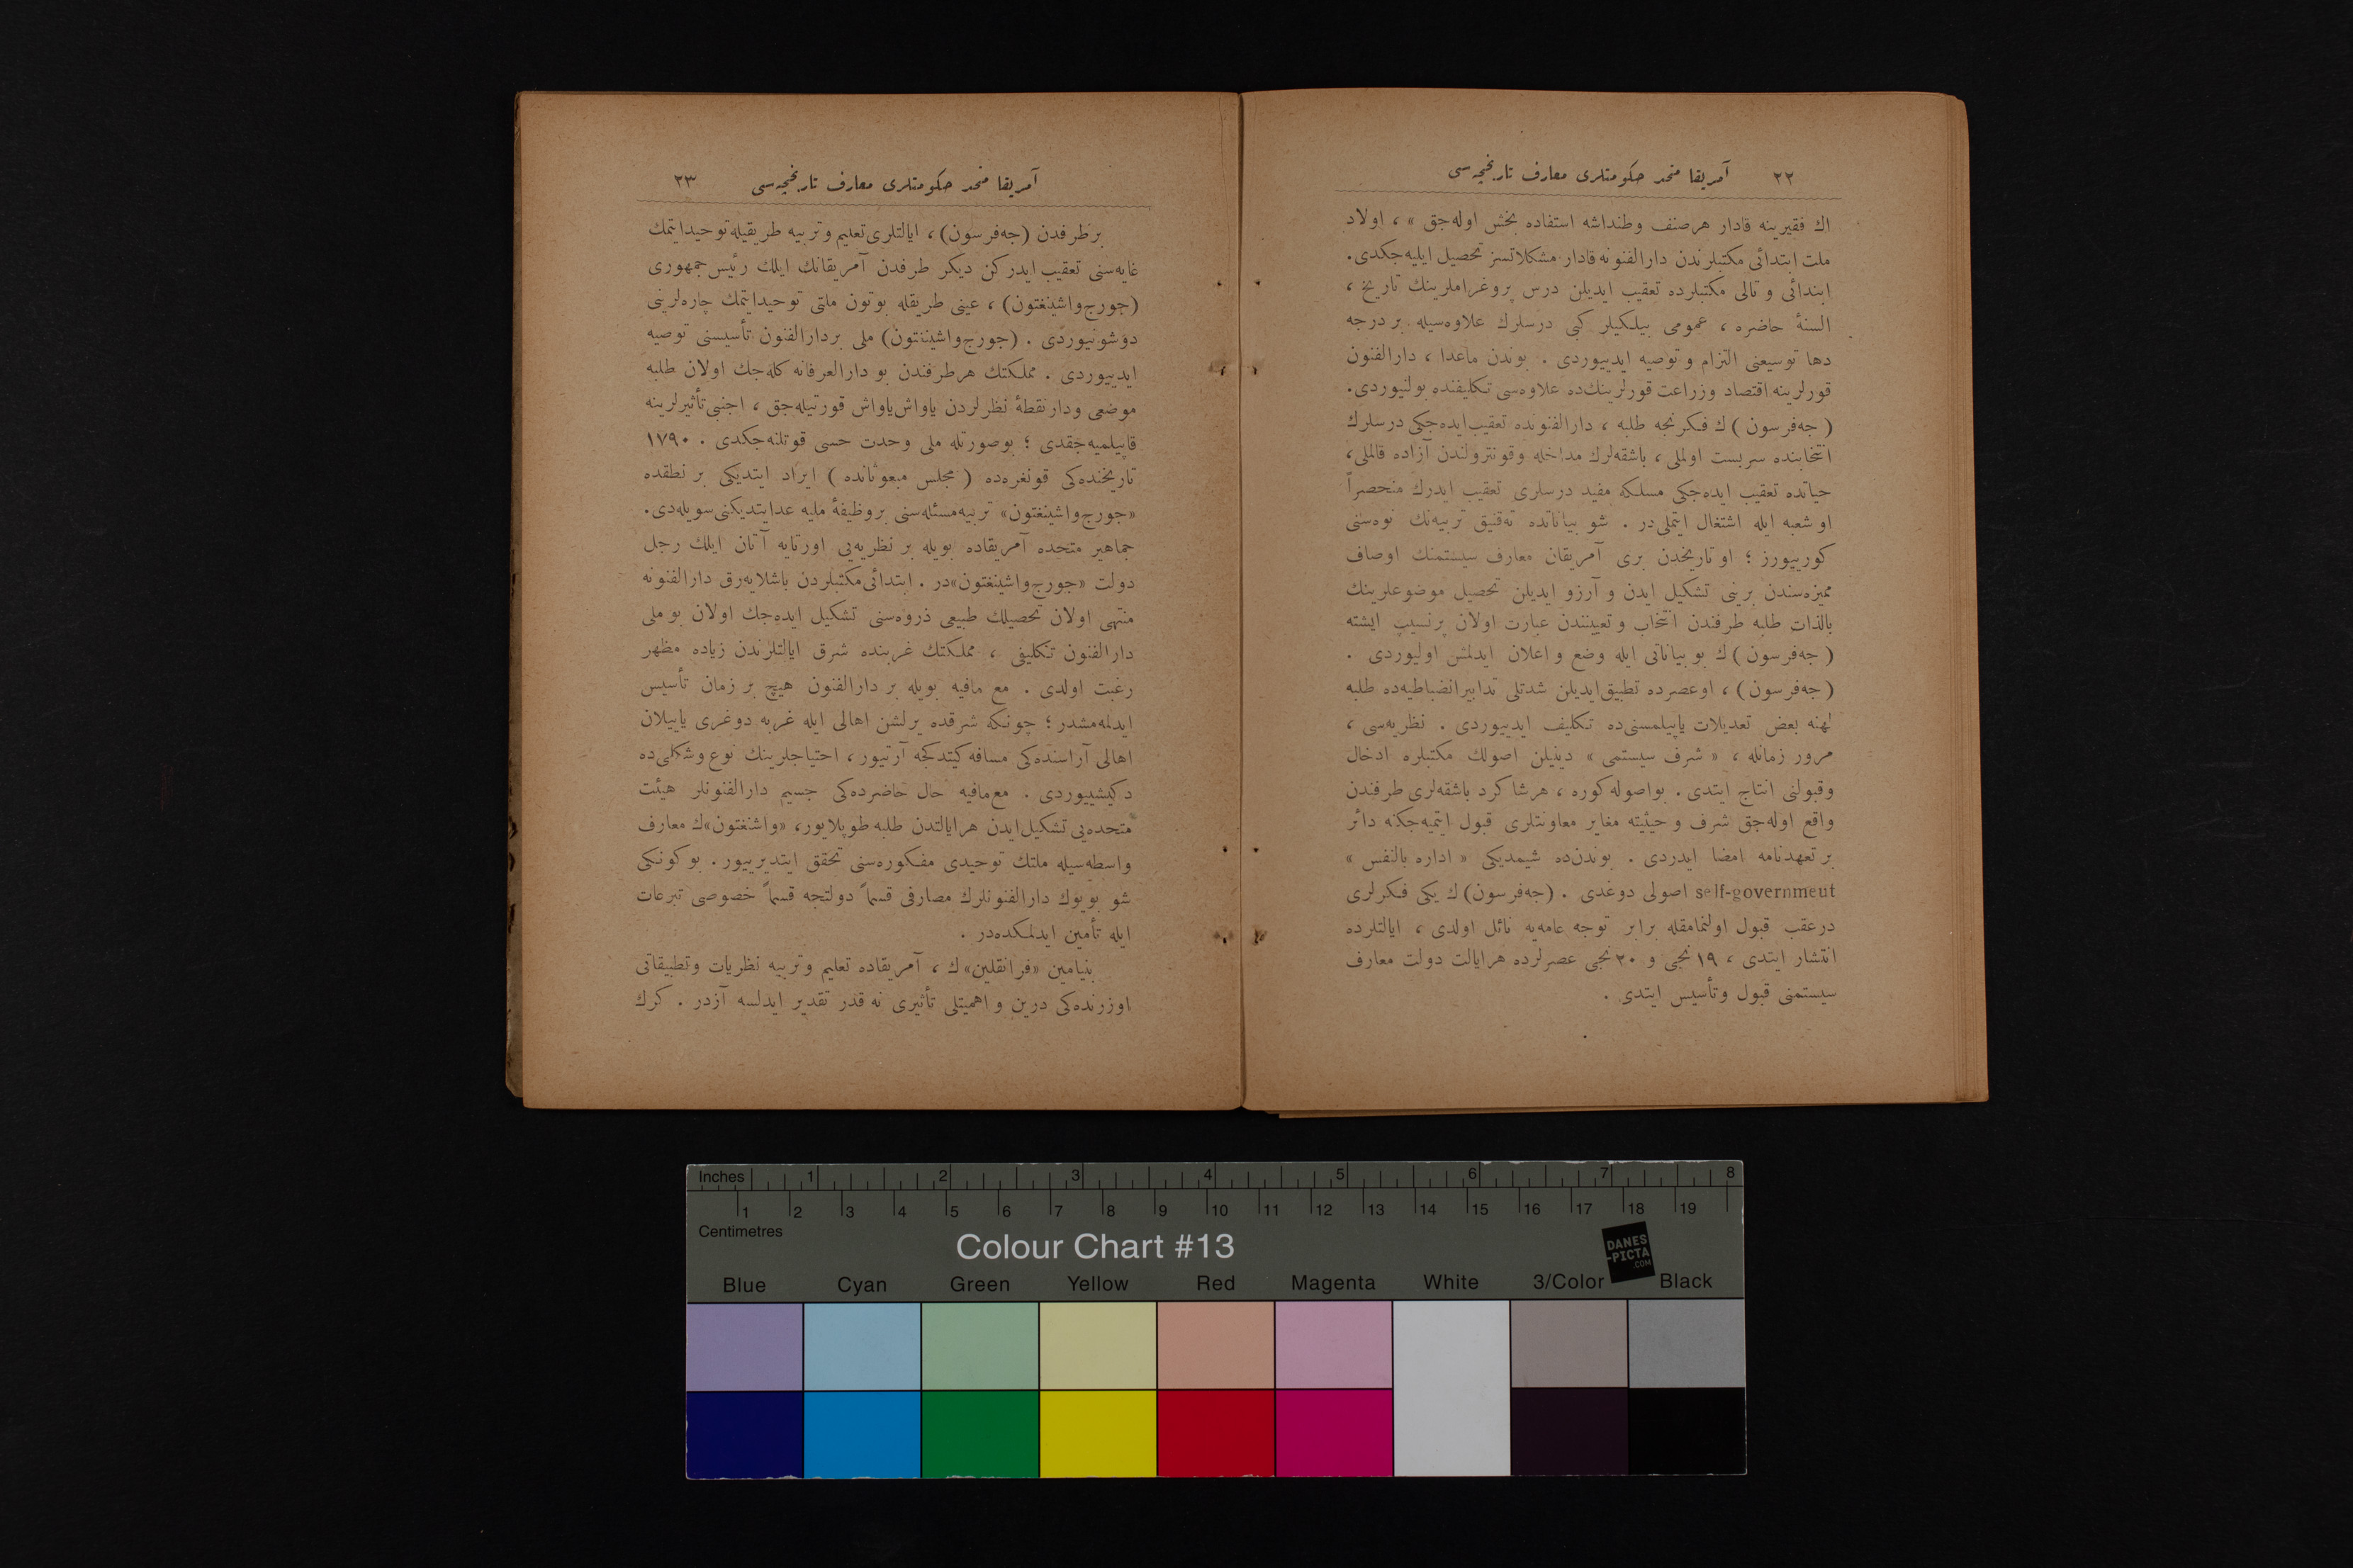 ٢٢ آمریقا متحد حكومتلری معارف تاریخچه‌سی
اك فقیرینه قادار هرصنف وطنداشه استفاده بخش اوله‌جق » ، اولاد
ملت ابتدائی مكتبلرندن دارالفنونه قادار مشكلاتسز تحصیل ایلیه‌جكدی.
ابتدائی و تالی مكتبلرده تعقیب ایدیلن درس پروغراملرینك تاریخ ،
السنهٔ حاضره ، عمومی بیلكیلر كبی درسلرك علاوه‌سیله بر درجه
دها توسیعنی التزام و توصیه ایدییوردی . بوندن ماعدا ، دارالفنون
قورلرینه اقتصاد وزراعت قورلرینك‌ده علاوه‌سی تكلیفنده بولنیوردی.
( جه‌فرسون ) ك فكرنجه طلبه ، دارالفنونده تعقیب‌ایده‌جكی درسلرك
انتخابنده سربست اولملی ، باشقه‌لرك مداخله وقونترولندن آزاده قالملی ،
حیاتده تعقیب ایده‌جكی مسلكه مفید درسلری تعقیب ایدرك منحصراً
او شعبه ایله اشتغال ایتملی‌در . شو بیاناتده ته‌قنیق تربیه‌نك نوه‌سنی
كورییورز ؛ او تاریخدن بری آمریقان معارف سیستمنك اوصاف
ممیزه‌سندن برینی تشكیل ایدن و آرزو ایدیلن تحصیل موضوعلرینك
بالذات طلبه طرفندن انتخاب و تعییننندن عبارت اولان پرنسیپ ایشته
( جه‌فرسون ) ك بو بیاناتی ایله وضع و اعلان ایدلمش اولیوردی .
( جه‌فرسون ) ، اوعصرده تطبیق‌ایدیلن شدتلی تدابیرانضباطیه‌ده طلبه
لهنه بعض تعدیلات یاپیلمسنی‌ده تكلیف ایدییوردی . نظریه‌سی ،
مرور زمانله ، « شرف سیستمی » دینیلن اصولك مكتبلره ادخال
وقبولنی انتاج ایتدی . بواصوله كوره ، هرشا كرد باشقه‌لری طرفندن
واقع اوله‌جق شرف و حیثیته مغایر معاونتلری قبول ایتمیه‌جكنه دائر
بر تعهدنامه امضا ایدردی . بوندن‌ده شیمدیكی « اداره بالنفس »
self-governmeut اصولی دوغدی . (جه‌فرسون) ك یكی فكرلری
درعقب قبول اولنمامقله برابر توجه عامه‌یه نائل اولدی ، ایالتلرده
انتشار ایتدی ، ١٩ نجی و ٢٠ نجی عصرلرده هرایالت دولت معارف
سیستمنی قبول وتأسیس ایتدی .
آمریقا متحد حكومتلری معارف تاریخچه‌سی ٢٣
برطرفدن (جه‌فرسون) ، ایالتلری تعلیم وتربیه طریقیله توحیدایتمك
غایه‌سنی تعقیب ایدركن دیكر طرفدن آمریقانك ایلك رئیس جمهوری
(جورج واشینغتون) ، عینی طریقله بوتون ملتی توحیدایتمك چاره‌لرینی
دوشونیوردی . (جورج واشیننتون) ملی بردارالفنون تأسیسنی توصیه
ایدییوردی . مملكتك هرطرفندن بو دارالعرفانه كله‌جك اولان طلبه
موضعی ودار نقطهٔ نظرلردن یاواش یاواش قورتیله‌جق ، اجنبی تأثیرلرینه
قاپیلمیه‌جقدی ؛ بوصورتله ملی وحدت حسی قوتلنه‌جكدی . ١٧٩٠
تاریخنده‌كی قونغره‌ده ( مجلس مبعوثانده ) ایراد ایتدیكی بر نطقده
«جورج واشینغتون» تربیه مسئله‌سنی بروظیفهٔ ملیه عدایتدیكنی سویله‌دی.
جماهیر متحده آمریقاده بویله بر نظریه‌یی اورتایه آتان ایلك رجل
دولت «جورج واشینغتون»در . ابتدائی مكتبلردن باشلایه‌رق دارالفنونه
منتهی اولان تحصیلك طبیعی ذروه‌سنی تشكیل ایده‌جك اولان بو ملی
دارالفنون تكلیفی ، مملكتك غربنده شرق ایالتلرندن زیاده مظهر
رغبت اولدی . مع مافیه بویله بر دارالفنون هیچ بر زمان تأسیس
ایدلمه‌مشدر ؛ چونكه شرقده یرلشن اهالی ایله غربه دوغری یاییلان
اهالی آراسنده‌كی مسافه كیتدكجه آرتیور ، احتیاجلرینك نوع وشكلی‌ده
دكیشییوردی . مع‌مافیه حال حاضرده‌كی جسیم دارالفنونلر هیئت
متحده‌یی تشكیل ایدن هرایالتدن طلبه طوپلایور، «واشنغتون»ك معارف
واسطه‌سیله ملتك توحیدی مفكوره‌سنی تحقق ایتدیرییور . بو كونكی
شو بویوك دارالفنونلرك مصارفی قسماً دولتجه قسماً خصوصی تبرعات
ایله تأمین ایدلمكده‌در .
بنیامین «فرانقلین» ك ، آمریقاده تعلیم وتربیه نظریات وتطبیقاتی
اوزرنده‌كی درین و اهمیتلی تأثیری نه قدر تقدیر ایدلسه آزدر . كرك
Inches 1 2 3 4 5 6 7 8
1 2 3 4 5 6 7 8 9 10 11 12 13 14 15 16 17 18 19
Centimetres
Colour Chart #13
DANES
-PICTA
.COM
Blue Cyan Green Yellow Red Magenta White 3/Color Black